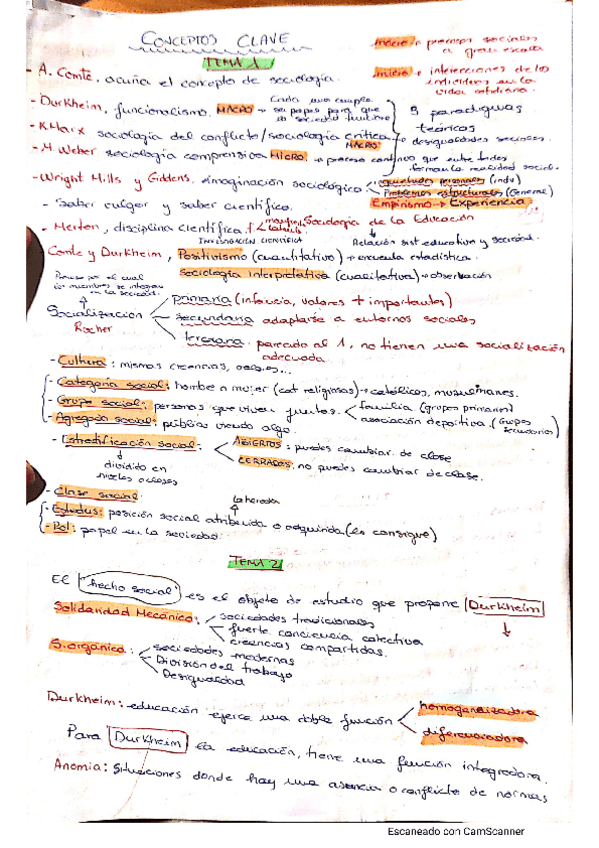 CONCEPTOS CLAVE
macro → procesos sociales a gran escala
TEMA 1
micro → interacciones de los individuos en la vida cotidiana
- A. Comte, acuña el concepto de sociología.
- Durkheim, funcionalismo. MACRO → Cada uno cumple su papel para que la sociedad funcione
3 paradigmas teóricos
- K. Marx sociología del conflicto/sociología crítica MACRO → desigualdades sociales.
- M. Weber sociología comprensiva MICRO → proceso continuo que entre todos forman la realidad social.
- Wright Mills y Giddens, imaginación sociológica
inquietudes personales (indv)
Problemas estructurales (General)
- Saber vulgar y saber científico.
Empirismo → Experiencia
- Merton, disciplina científica f. manifiesta latente
Sociología de la Educación
INVESTIGACIÓN CIENTÍFICA
Relación sist educativo y sociedad.
Comte y Durkheim, Positivismo (cuantitativo) → encuesta estadística.
Sociología interpretativa (cualitativa) → observación
Proceso por el cual los miembros se integran en la sociedad.
Socialización
Rocher
primaria (infancia, valores + importantes)
secundaria adaptarse a entornos sociales
terciaria parecido al 1, no tienen una socialización adecuada.
- Cultura: mismas creencias,
- Categoría social: hombre o mujer (cat religiosas) → católicos, musulmanes.
- Grupo social: personas que viven juntos.
familia (grupos primarios)
asociación deportiva. (Grupos secundarios)
- Agregado social: público viendo algo.
- Estratificación social:
ABIERTOS: puedes cambiar de clase
CERRADOS: no puedes cambiar de clase.
dividido en niveles o clases
- Clase social.
la heredas
- Estatus: posición social atribuida o adquirida (se consigue)
- Rol: papel en la sociedad.
TEMA 2
El "hecho social" es el objeto de estudio que propone Durkheim
Solidaridad Mecánica:
sociedades tradicionales
fuerte conciencia colectiva
creencias compartidas.
S. orgánica:
sociedades modernas
División del trabajo
Desigualdad
Durkheim: educación ejerce una doble función
homogeneizadora
diferenciadora
Para Durkheim la educación, tiene una función integradora.
Anomia: Situaciones donde hay una ausencia o conflicto de normas
Escaneado con CamScanner